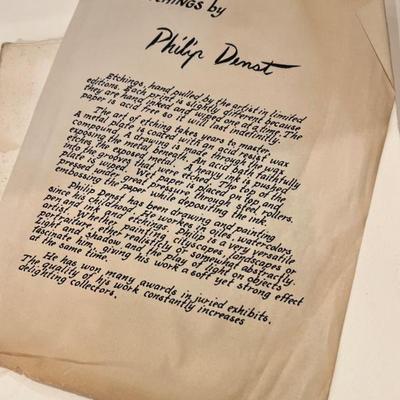 ETCHINGS by
Philip Denst
Etchings, hand pulled by the artist in limited
editions. Each print is slightly different because
they are hand inked and wiped one at a time. The
paper is acid free so it will last indefinitely.
The art of etching takes years to master.
A metal plate is coated with an acid resist wax
compound. A drawing is made through the wax
exposing the metal beneath. An acid bath faithfully
etches the exposed metal. A heavy ink is pushed
into the grooves that were etched. The top of the
plate is wiped. Wet paper is placed on top, and
pressed under great pressure through steel rollers,
embossing the paper while depositing the ink.
Philip Denst has been drawing and painting
since his childhood. He works in oils, watercolors
pen and ink, and etchings. Philip is a very versatile
artist. Whether painting cityscapes, landscapes or
portraiture, either realistic or somewhat abstractly,
light and shadow and the play of light on objects
fascinate him, giving his work a soft yet strong effect
at the same time.
He has won many awards in juried exhibits.
The quality of his work constantly increases
delighting collectors.